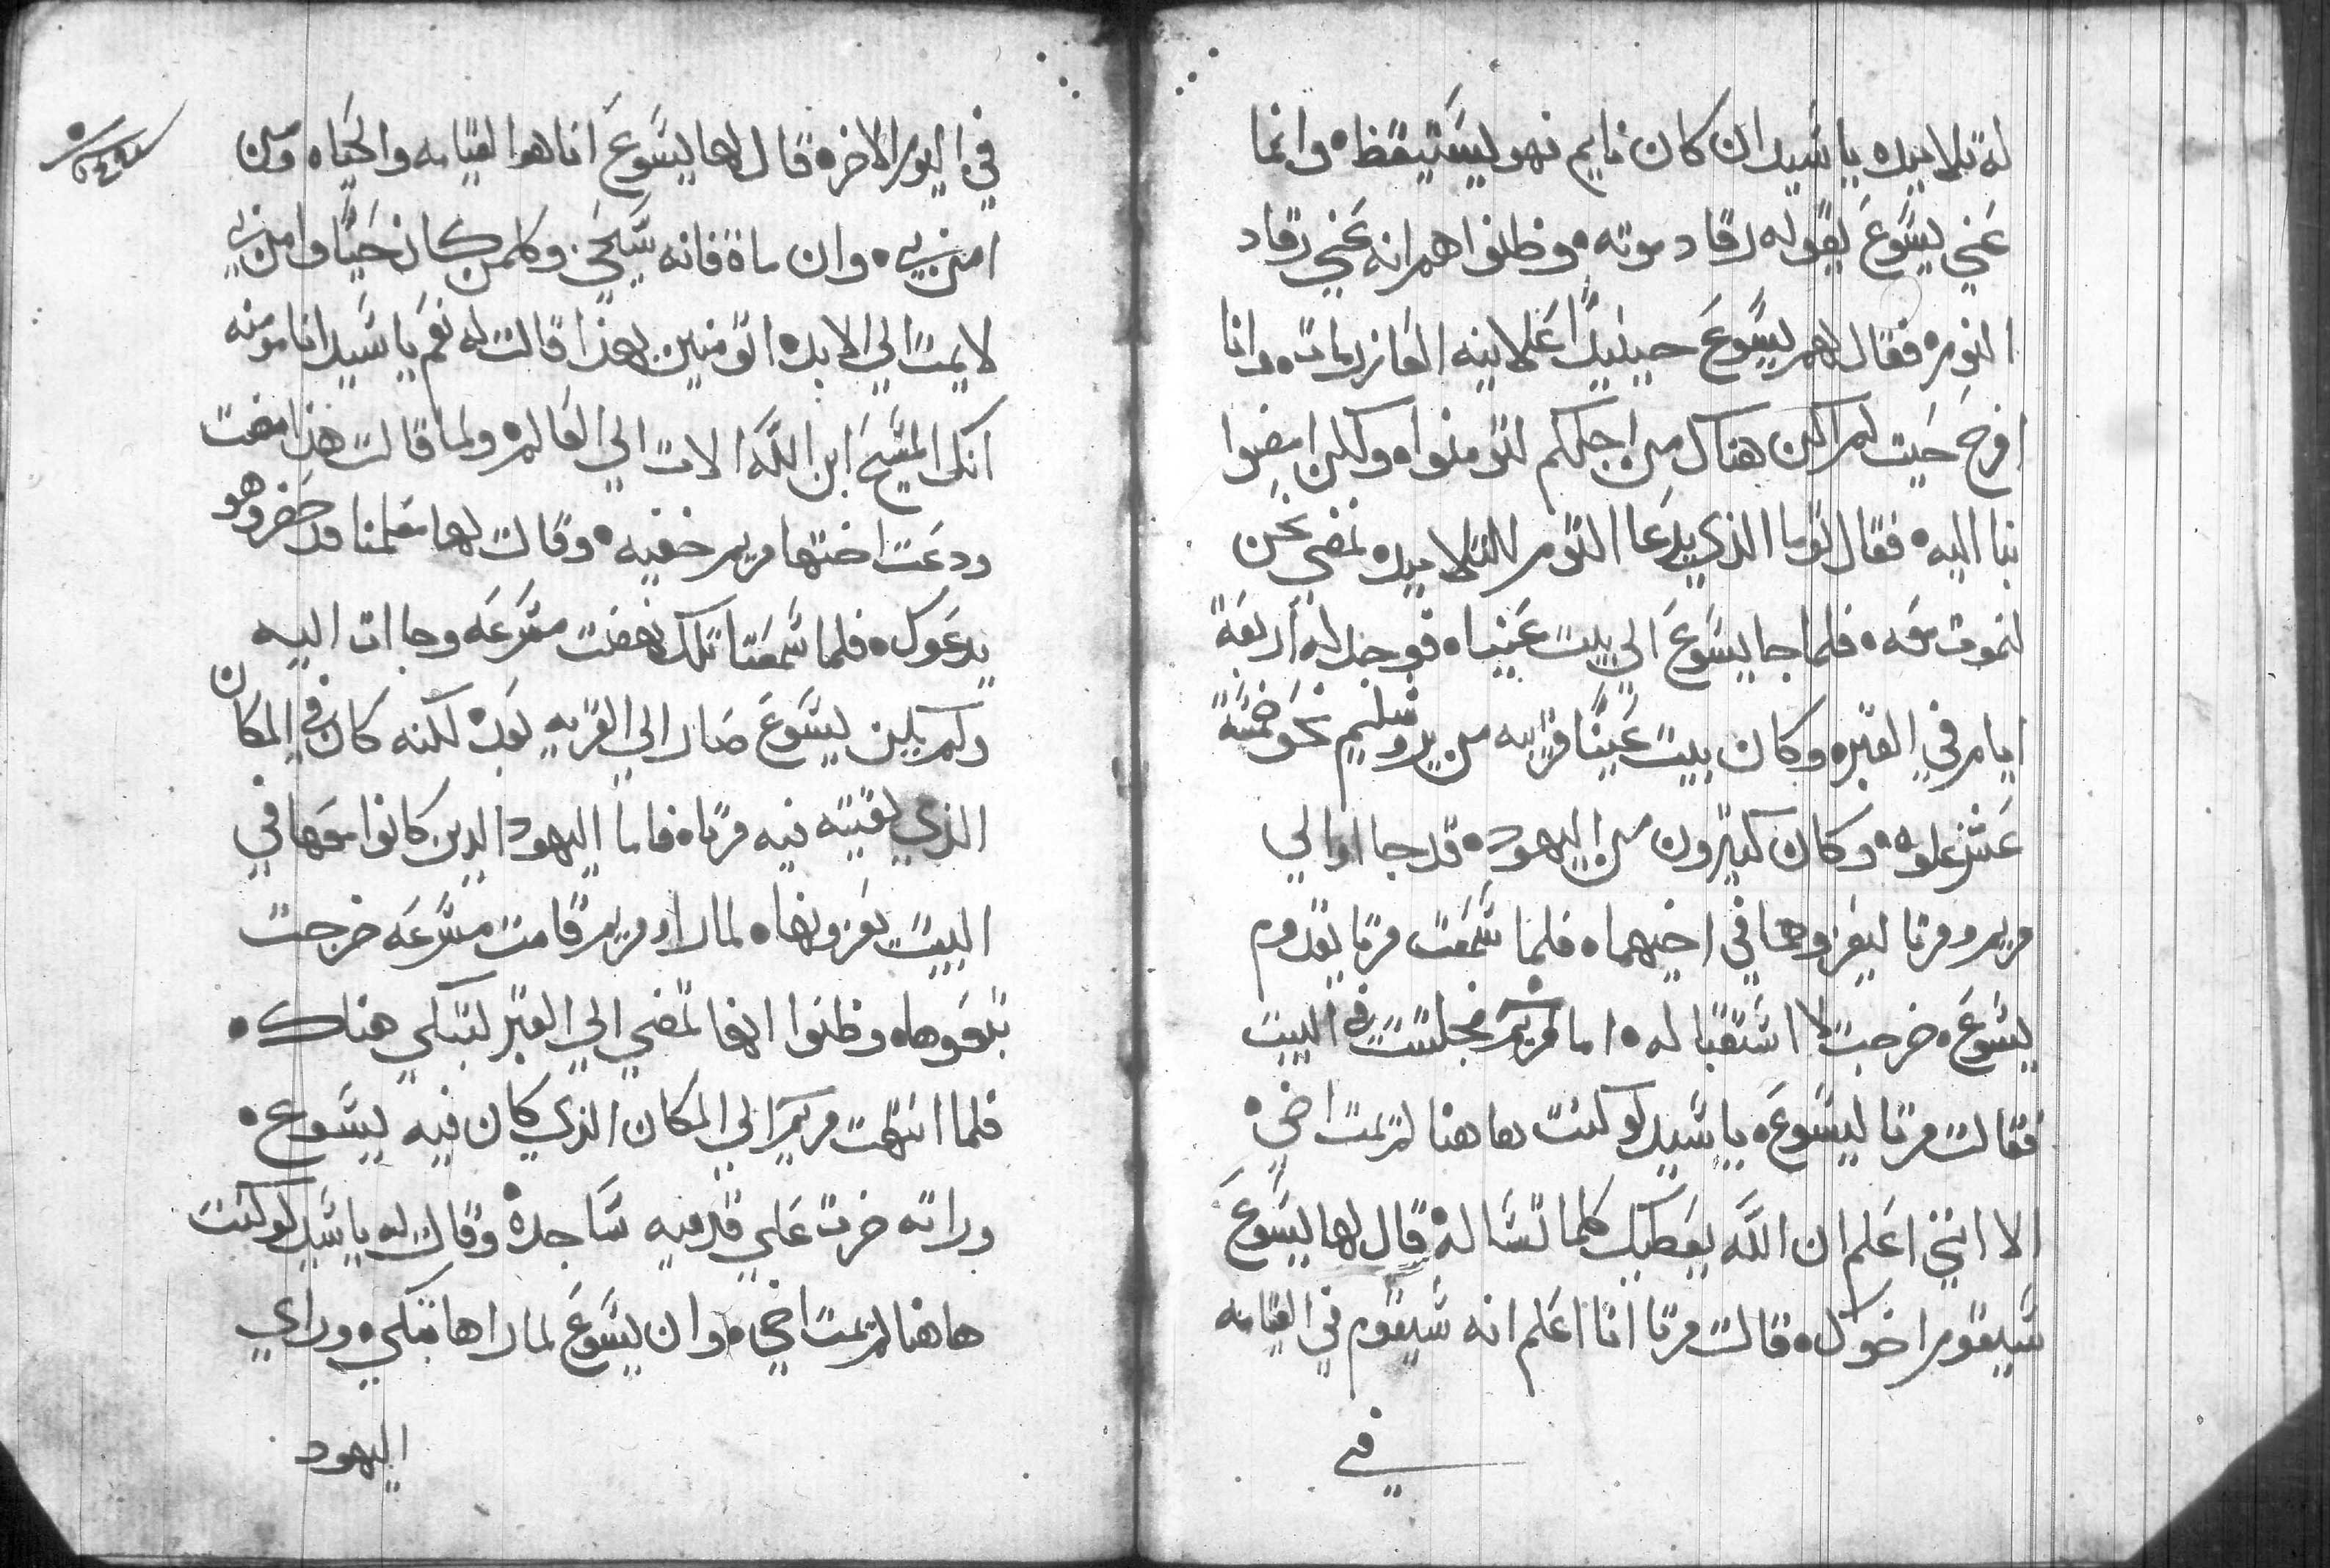 له تلاميده يا سيد ان كان نايم فهو ليستيقظ٠ وانما
عني يسوع بقوله رقاد موته٠ وظنوا هم انه عني رقاد
النوم٠ فقال لهم يسوع حينيدًا علانيه العازر مات٠ وانا
افرح حيت لم اكن هناك من اجلكم لتومنوا٠ ولكن امضوا
بنا اليه٠ فقال توما الذي يدعا التوم للتلاميد٠ نمضي نحن
لنموت معه٠ فلما جا يسوع الي بيت عنيا٠ فوجد له أربعة
ايام في القبر٠ وكان بيت عنيًا قريبه من يروشليم نحو خمسة
عشر غلوه٠ وكان كتيرون من اليهود٠ قد جااوا الي
مريم ومرتا ليعزوهما في اخيهما٠ فلما سمعت مرتا بقدوم
يسوع٠ خرجت لاستقباله٠ اما مريم فجلست في البيت
فقالت مرتا ليسوع٠ يا سيد لو كنت هاهنا لم يمت اخي٠
الا انني اعلم ان الله يعطيك كلما تساله٠ قال لها يسوع
سيقوم اخوك٠ قالت مرتا انا اعلم انه سيقوم في القيامه
في
في اليوم الاخر٠ قال لها يسوع انا هو القيامه والحياه ومن
امن بي٠ وان ماة فانه سيحيٰ وكلمن كان حيًا وامن بي
لا يمت الي الابد٠ اتومنين بهذا قالت له نعم يا سيد انا مومنه
انك المسيح ابن الله الات الي العالم٠ ولما قالت هذا مضت
ودعت اختها مريم خفيه٠ وقالت لها معلمنا قد حضر وهو
يدعوك٠ فلما سمعت تلك نهضت مسرعه وجاات اليه
ولم يكن يسوع صار الي القريه بعد٠ لكنه كان في المكان
الذي لقيته فيه مرتا٠ فاما اليهود الدين كانوا معها في
البيت يعزونها٠ لما راو مريم قامت مسرعه خرجت
تبعوها٠ وظنوا انها تمضي الي القبر لتبكي هناك٠
فلما انتهت مريم الي المكان الذي كان فيه يسوع٠
وراته خرت علي قدميه ساجدة٠ وقالت له يا سيد لو كنت
هاهنا لم يمت اخي٠ وان يسوع لما راها تبكي٠ وراي
اليهود